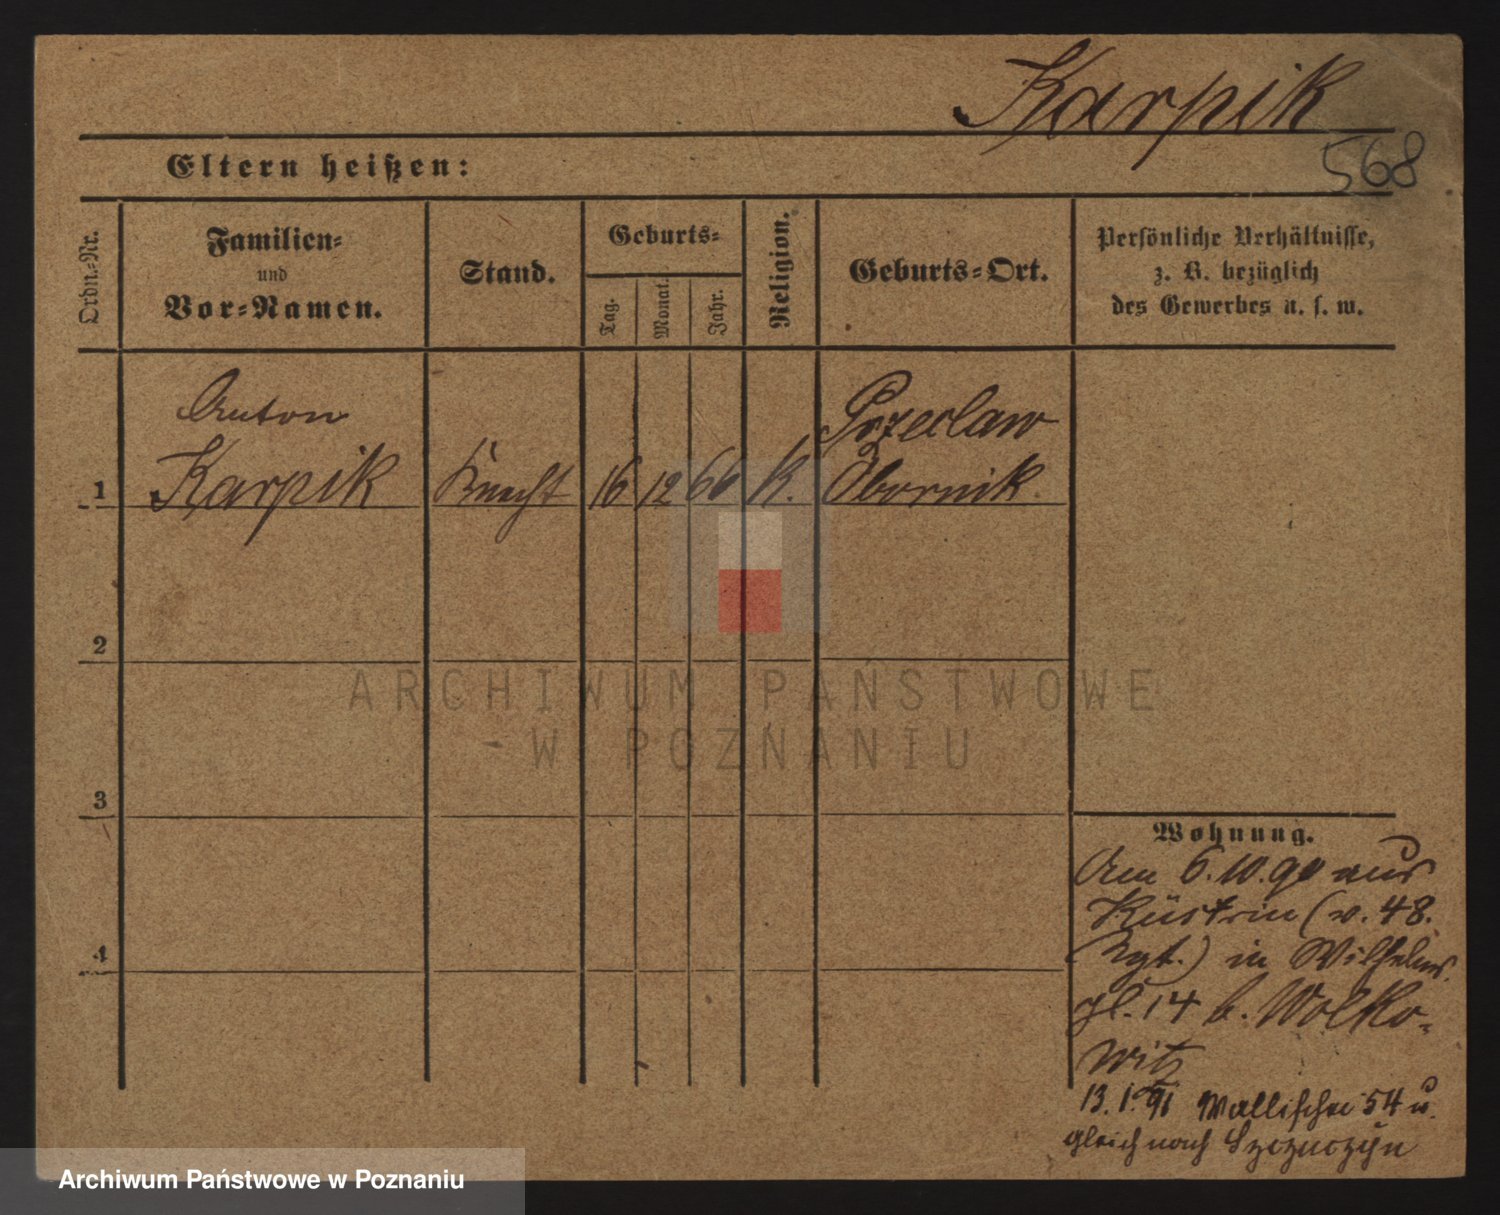 Karpik
568
Eltern heißen:
Ordn.-Nr.
Familien-
und
Vor-Namen.
Stand.
Geburts-
Tag.
Monat.
Jahr.
Religion.
Geburts-Ort.
Persönliche Verhältnisse,
z. B. bezüglich
des Gewerbes u. s. w.
Anton
Karpik
Przeclaw
1
Knecht
16
12
66
K.
Obornik.
2
3
4
Wohnung.
Am 6.10.90 aus
Küstrin (v. 48.
Rgt.) in Wilhelms
pl. 14 b. Wolko-
witz
13. 1. 91 Wallischei 54 u.
gleich nach
ARCHIWUM PAŃSTWOWE
W POZNANIU
Archiwum Państwowe w Poznaniu